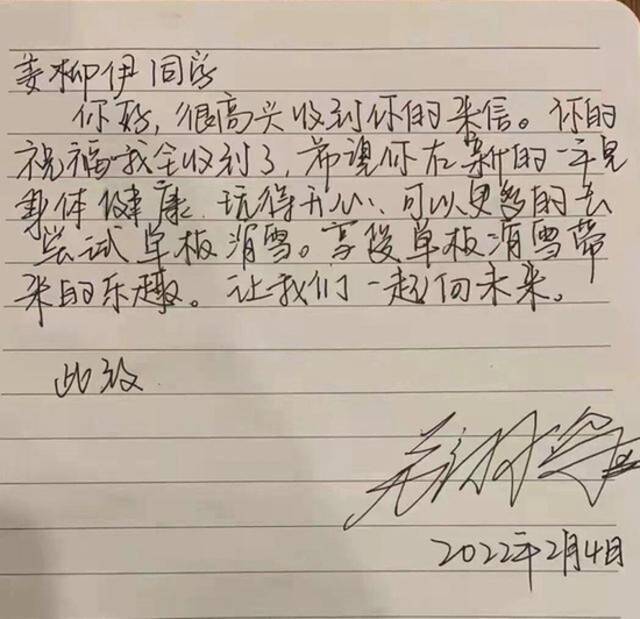 姜柳伊同学
你好，很高兴收到你的来信。你的
祝福我全收到了，希望你在新的一年里
身体健康、玩得开心、可以更多的去
尝试单板滑雪。享受单板滑雪带
来的乐趣。让我们一起向未来。
此致
2022年2月4日